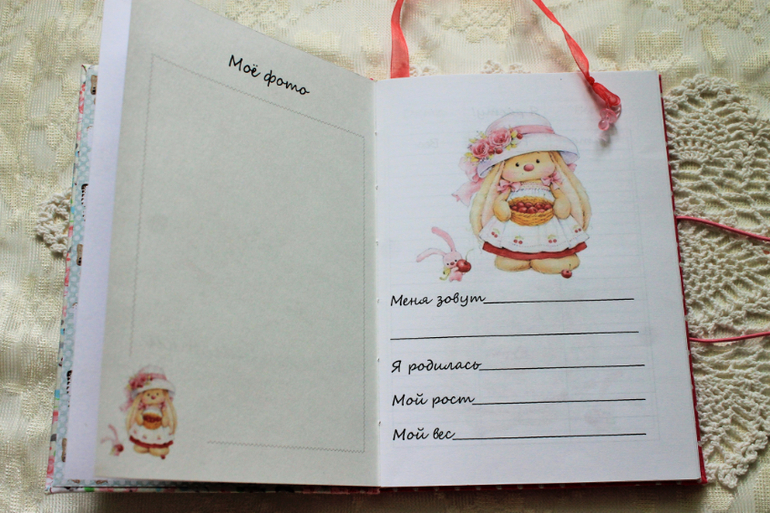 Моё фото
Меня зовут
Я родилась
Мой рост
Мой вес